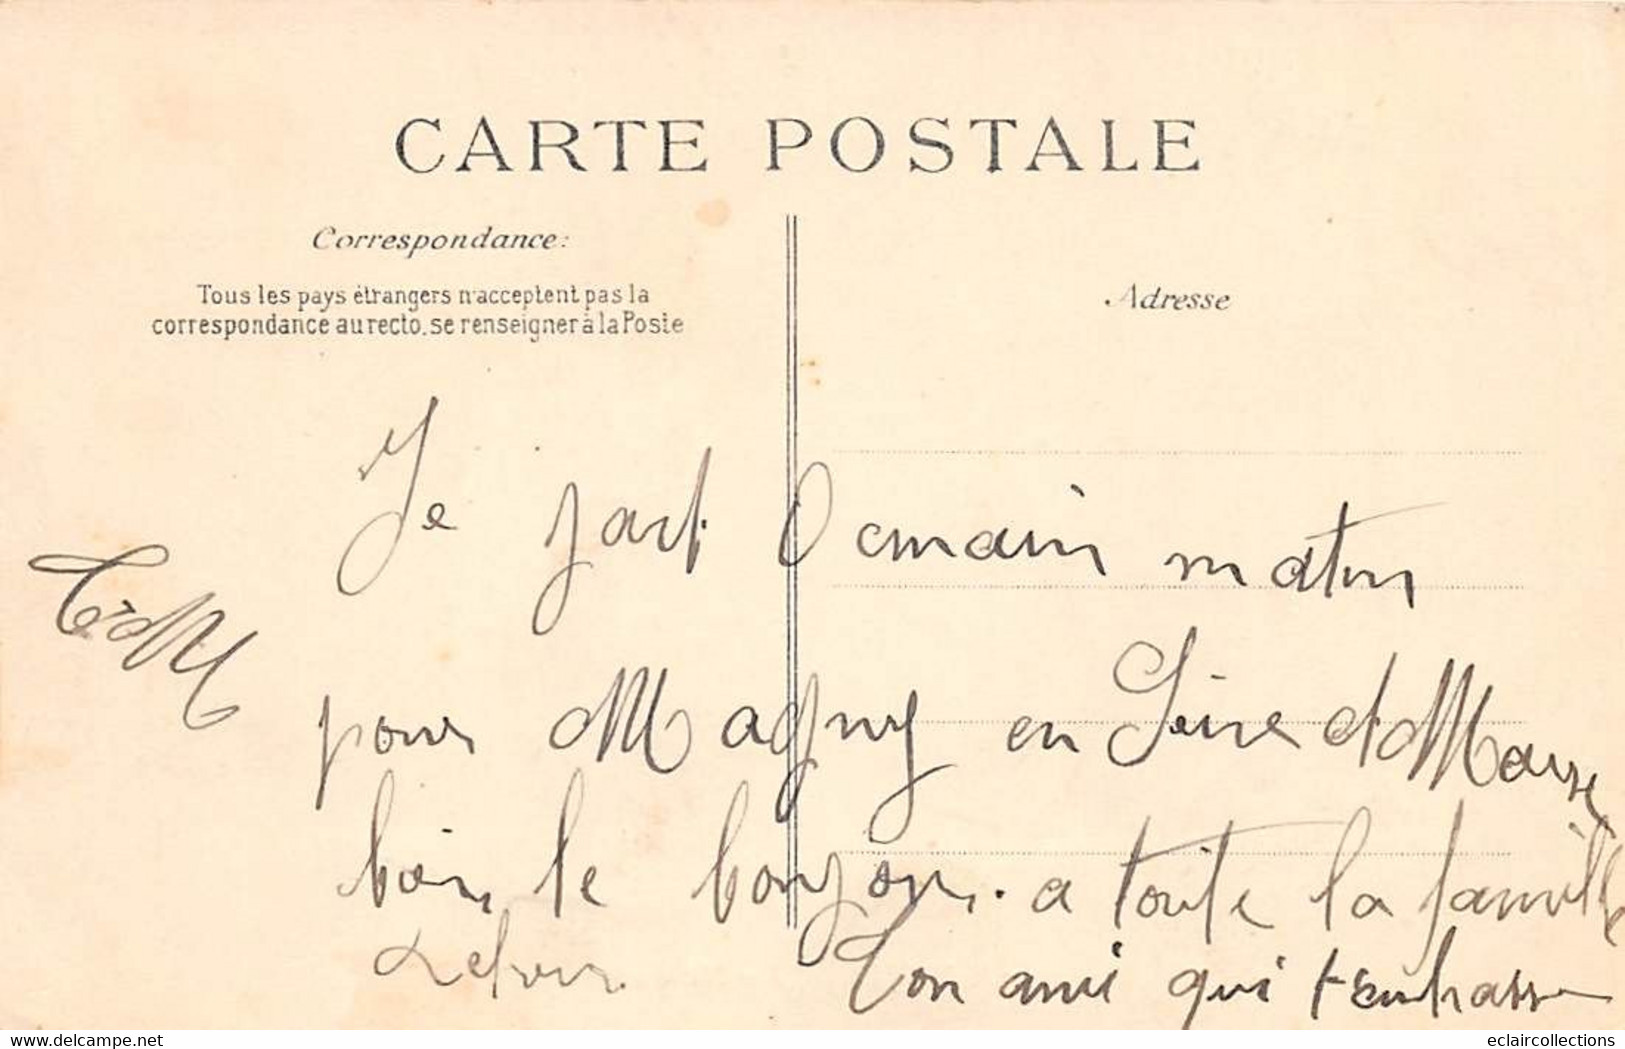 CARTE POSTALE
Correspondance:
Tous les pays étrangers n'acceptent pas la
correspondance au recto. se renseigner à la Poste
Adresse
Je part Demain matin
pour Magny en Seine et Marne
bien le bonjour. a toute la famille
Ton ami qui t'embrasse
delcampe.net
eclaircollections